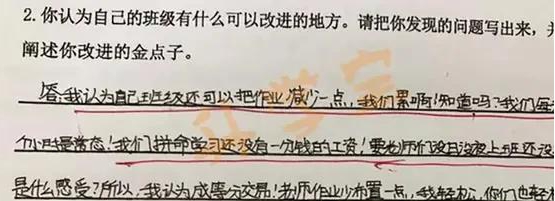 2.你认为自己的班级有什么可以改进的地方。请把你发现的问题写出来，并
阐述你改进的金点子。
答:我认为自己班级还可以把作业减少一点，我们累啊!知道吗?我们每
小时是常态!我们拼命学习还没有一分钱的工资!要老师们没日没夜上班还没
是什么感受?所以，我认为成等分交易!老师作业少布置一点，我轻松，你们也轻松